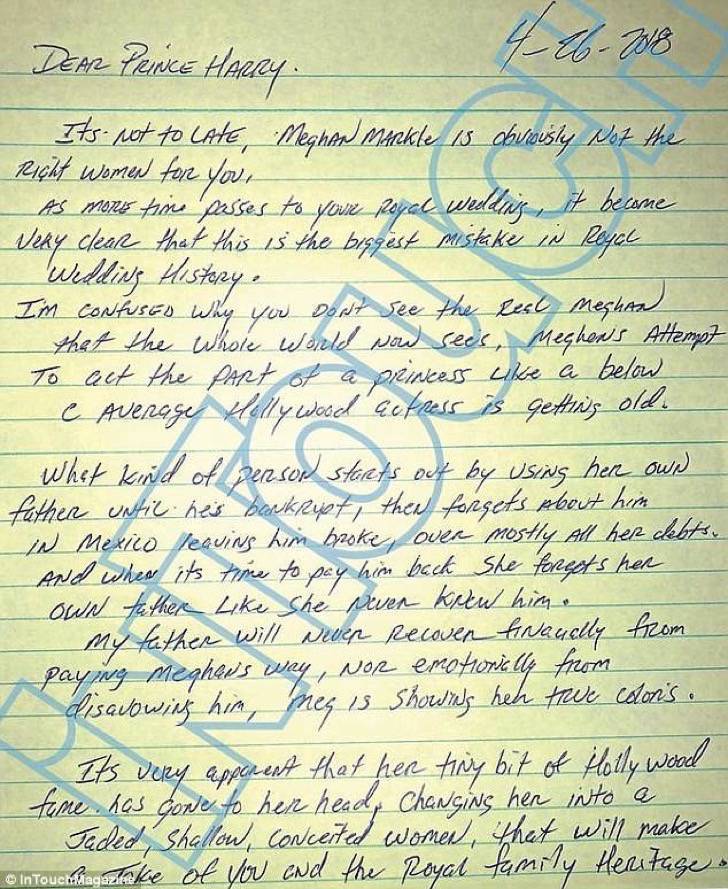 4-26-2018
DEAR PRINCE HARRY.
Its not to LATE, Meghan MARKle is obviously Not the
Right women for you,
AS MORE time passes to your Royal wedding, it become
Very clear that this is the biggest mistake in Royal
Wedding History.
I'm CONfUSED why you DON't See the Real Meghan
that the whole world Now see's, Meghen's Attempt
To act the PART of a princess Like a below
C AVERAGE Hollywood actress is getting old.
What kind of person starts out by using her own
father until he's bankrupt, then forgets about him
IN Mexico leaving him broke, over mostly All her debts.
AND when its time to pay him back She forgets her
OWN father Like She Never KNEW him.
My father will Never Recover finacially from
paying Meghans way, NOR emotionally from
disavowing him, Meg is Showing her true colors.
Its very apparent that her tiny bit of Hollywood
fame has gone to her head, Changing her into a
Jaded, Shallow, conceited women, that will make
a Joke of you and the Royal family Heritage.
InTouch
© InTouchMagazine